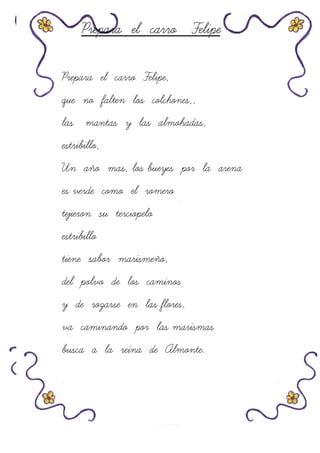 Prepara el carro Felipe
Prepara el carro Felipe,
que no falten los colchones,,
las mantas y las almohadas,
estribillo,
Un año mas, los bueyes por la arena
es verde como el romero
tejieron su terciopelo
estribillo
tiene sabor marismeño,
del polvo de los caminos
y de rozarse en las flores,
va caminando por las marismas
busca a la reina de Almonte.